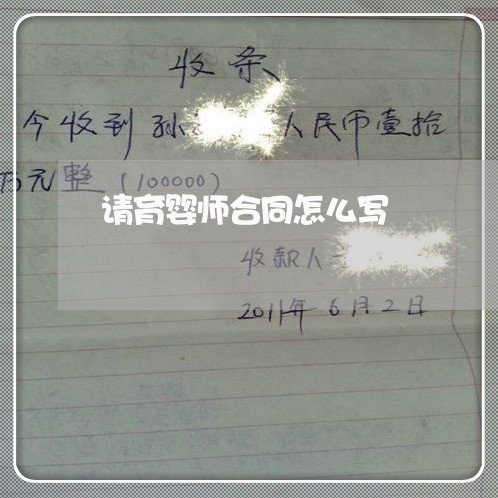 收条
今收到孙 人民币壹拾
万元整(100000)
请育婴师合同怎么写
收款人
2011年6月2日